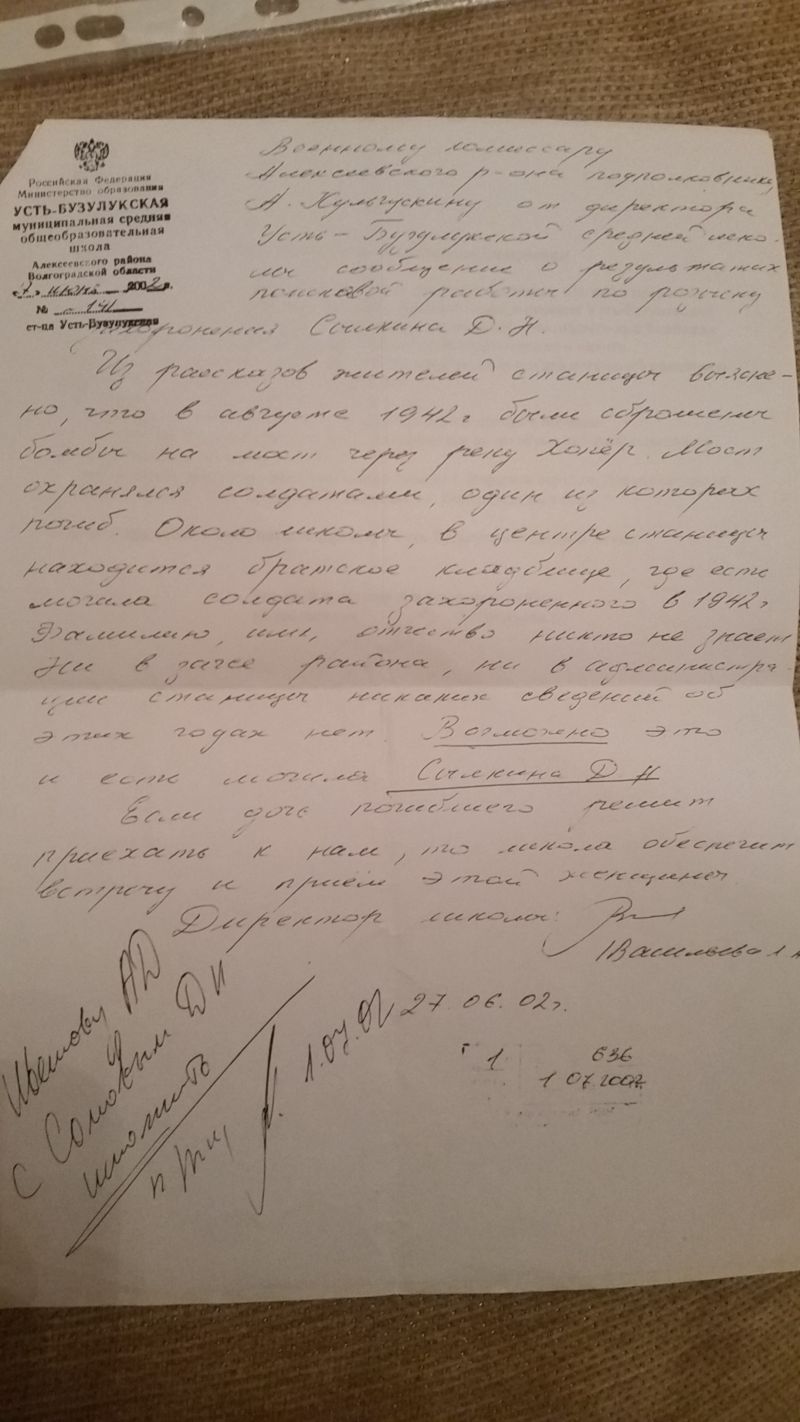 Российская Федерация
Министерство образования
УСТЬ-БУЗУЛУКСКАЯ
муниципальная средняя
общеобразовательная
школа
Алексеевского района
Волгоградской области
июнь 2002 г.
№ 141
ст-ца Усть-Бузулукская
Военному комиссару
Алексеевского р-она подполковнику
А. от директора
Усть-Бузулукской средней шко-
лы сообщение о результатах
поисковой работы по розыску
захоронения Сылкина Д. Н.
Из рассказов жителей станицы выясне-
но, что в августе 1942 г были сброшены
бомбы на мост через реку Хопёр. Мост
охранялся солдатами, один из которых
погиб. Около школы, в центре станицы
находится братское кладбище, где есть
могила солдата захороненного в 1942 г
Фамилию, имя, отчество никто не знает
Ни в загсе района, ни в администра-
ции станицы никаких сведений об
этих годах нет. Возможно это
и есть могила Сылкина Д Н
Если дочь погибшего решит
приехать к нам, то школа обеспечит
встречу и приём этой женщины
Директор школы:
Васильева
27. 06. 02 г.
АД
с ДИ
1.07.02
1 636
1 07.2002